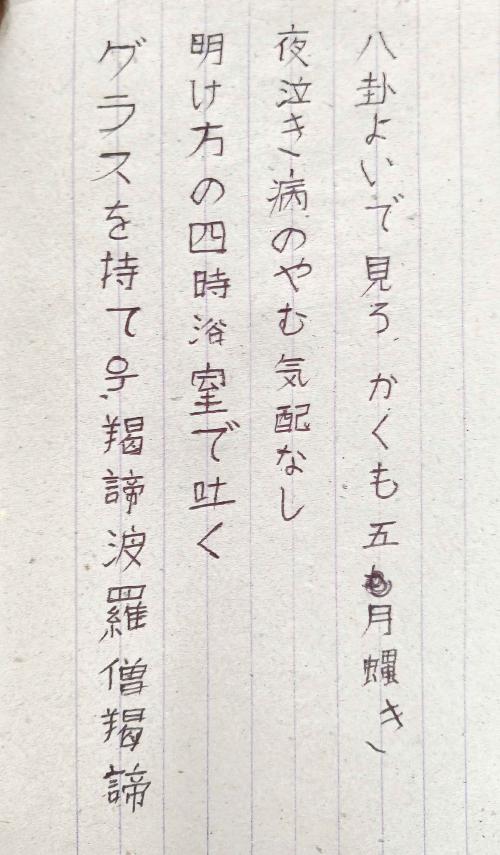 八卦よいで見ろ、かくも五月蠅き、
夜泣き、病のやむ気配なし
明け方の四時浴室で吐く
グラスを持て号、羯諦波羅僧羯諦